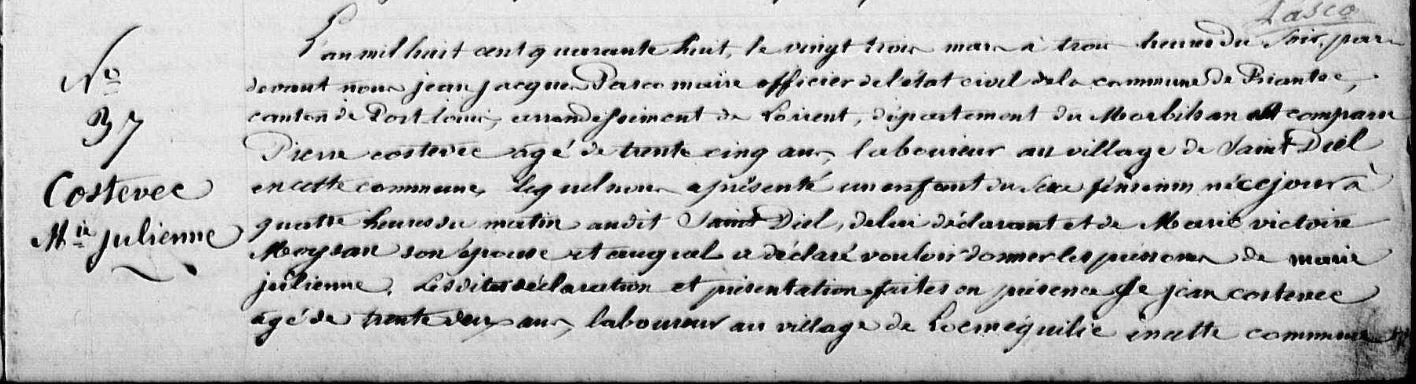 Pasco
L'an mil huit cent quarante huit, le vingt trois mars à trois heures du soir, par
N°
devant nous jean jacques Pasco maire officier de l'état civil de la commune de Riantec,
37
canton de Port-louis, arrondissement de Lorient, département du Morbihan est comparu
Pierre costevec âgé de trente cinq ans, laboureur au village de Saint Diel
Costevec
en cette commune, lequel nous a présenté un enfant du sexe féminin né ce jour à
M.ie julienne
quatre heures du matin audit Saint Diel, de lui déclarant et de Marie victoire
Moysan son épouse et auquel il a déclaré vouloir donner les prénoms de marie
julienne. Lesdites déclaration et présentation faites en présence de jean costevec
âgé de trente deux ans, laboureur au village de Locméquilic en cette commune